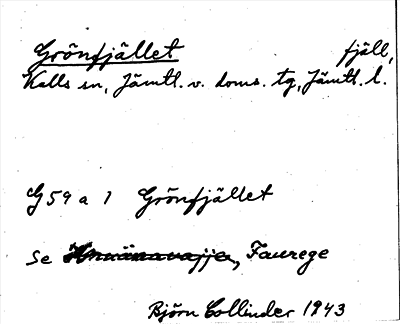 Grönfjället fjäll,
Kalls sn, Jämtl. v. doms. tg, Jämtl. l.
G 59 a 1 Grönfjället
Se Faurege
Björn Collinder 1943